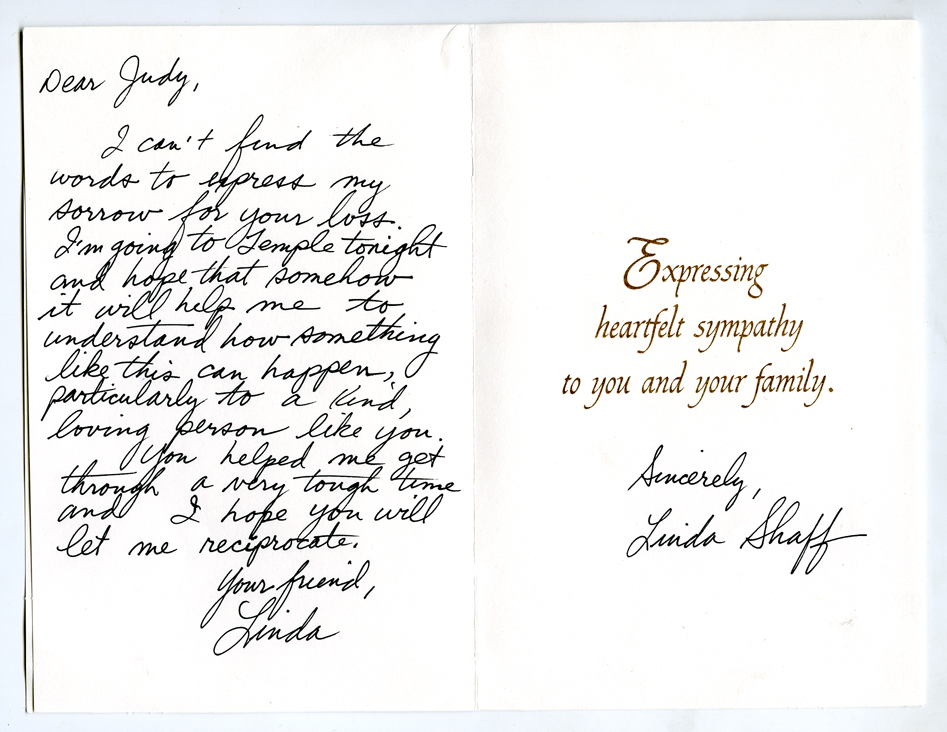 Dear Judy,
I can't find the
words to express my
sorrow for your loss.
I'm going to Temple tonight
and hope that somehow
it will help me to
understand how something
like this can happen,
particularly to a kind,
loving person like you.
You helped me get
through a very tough time
and I hope you will
let me reciprocate.
Your friend,
Linda
Expressing
heartfelt sympathy
to you and your family.
Sincerely,
Linda Shaff